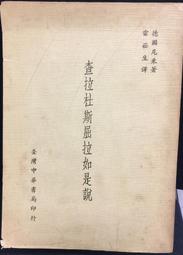 德國尼采著
雷崧生譯
查拉杜斯屈拉如是說
臺灣中華書局印行